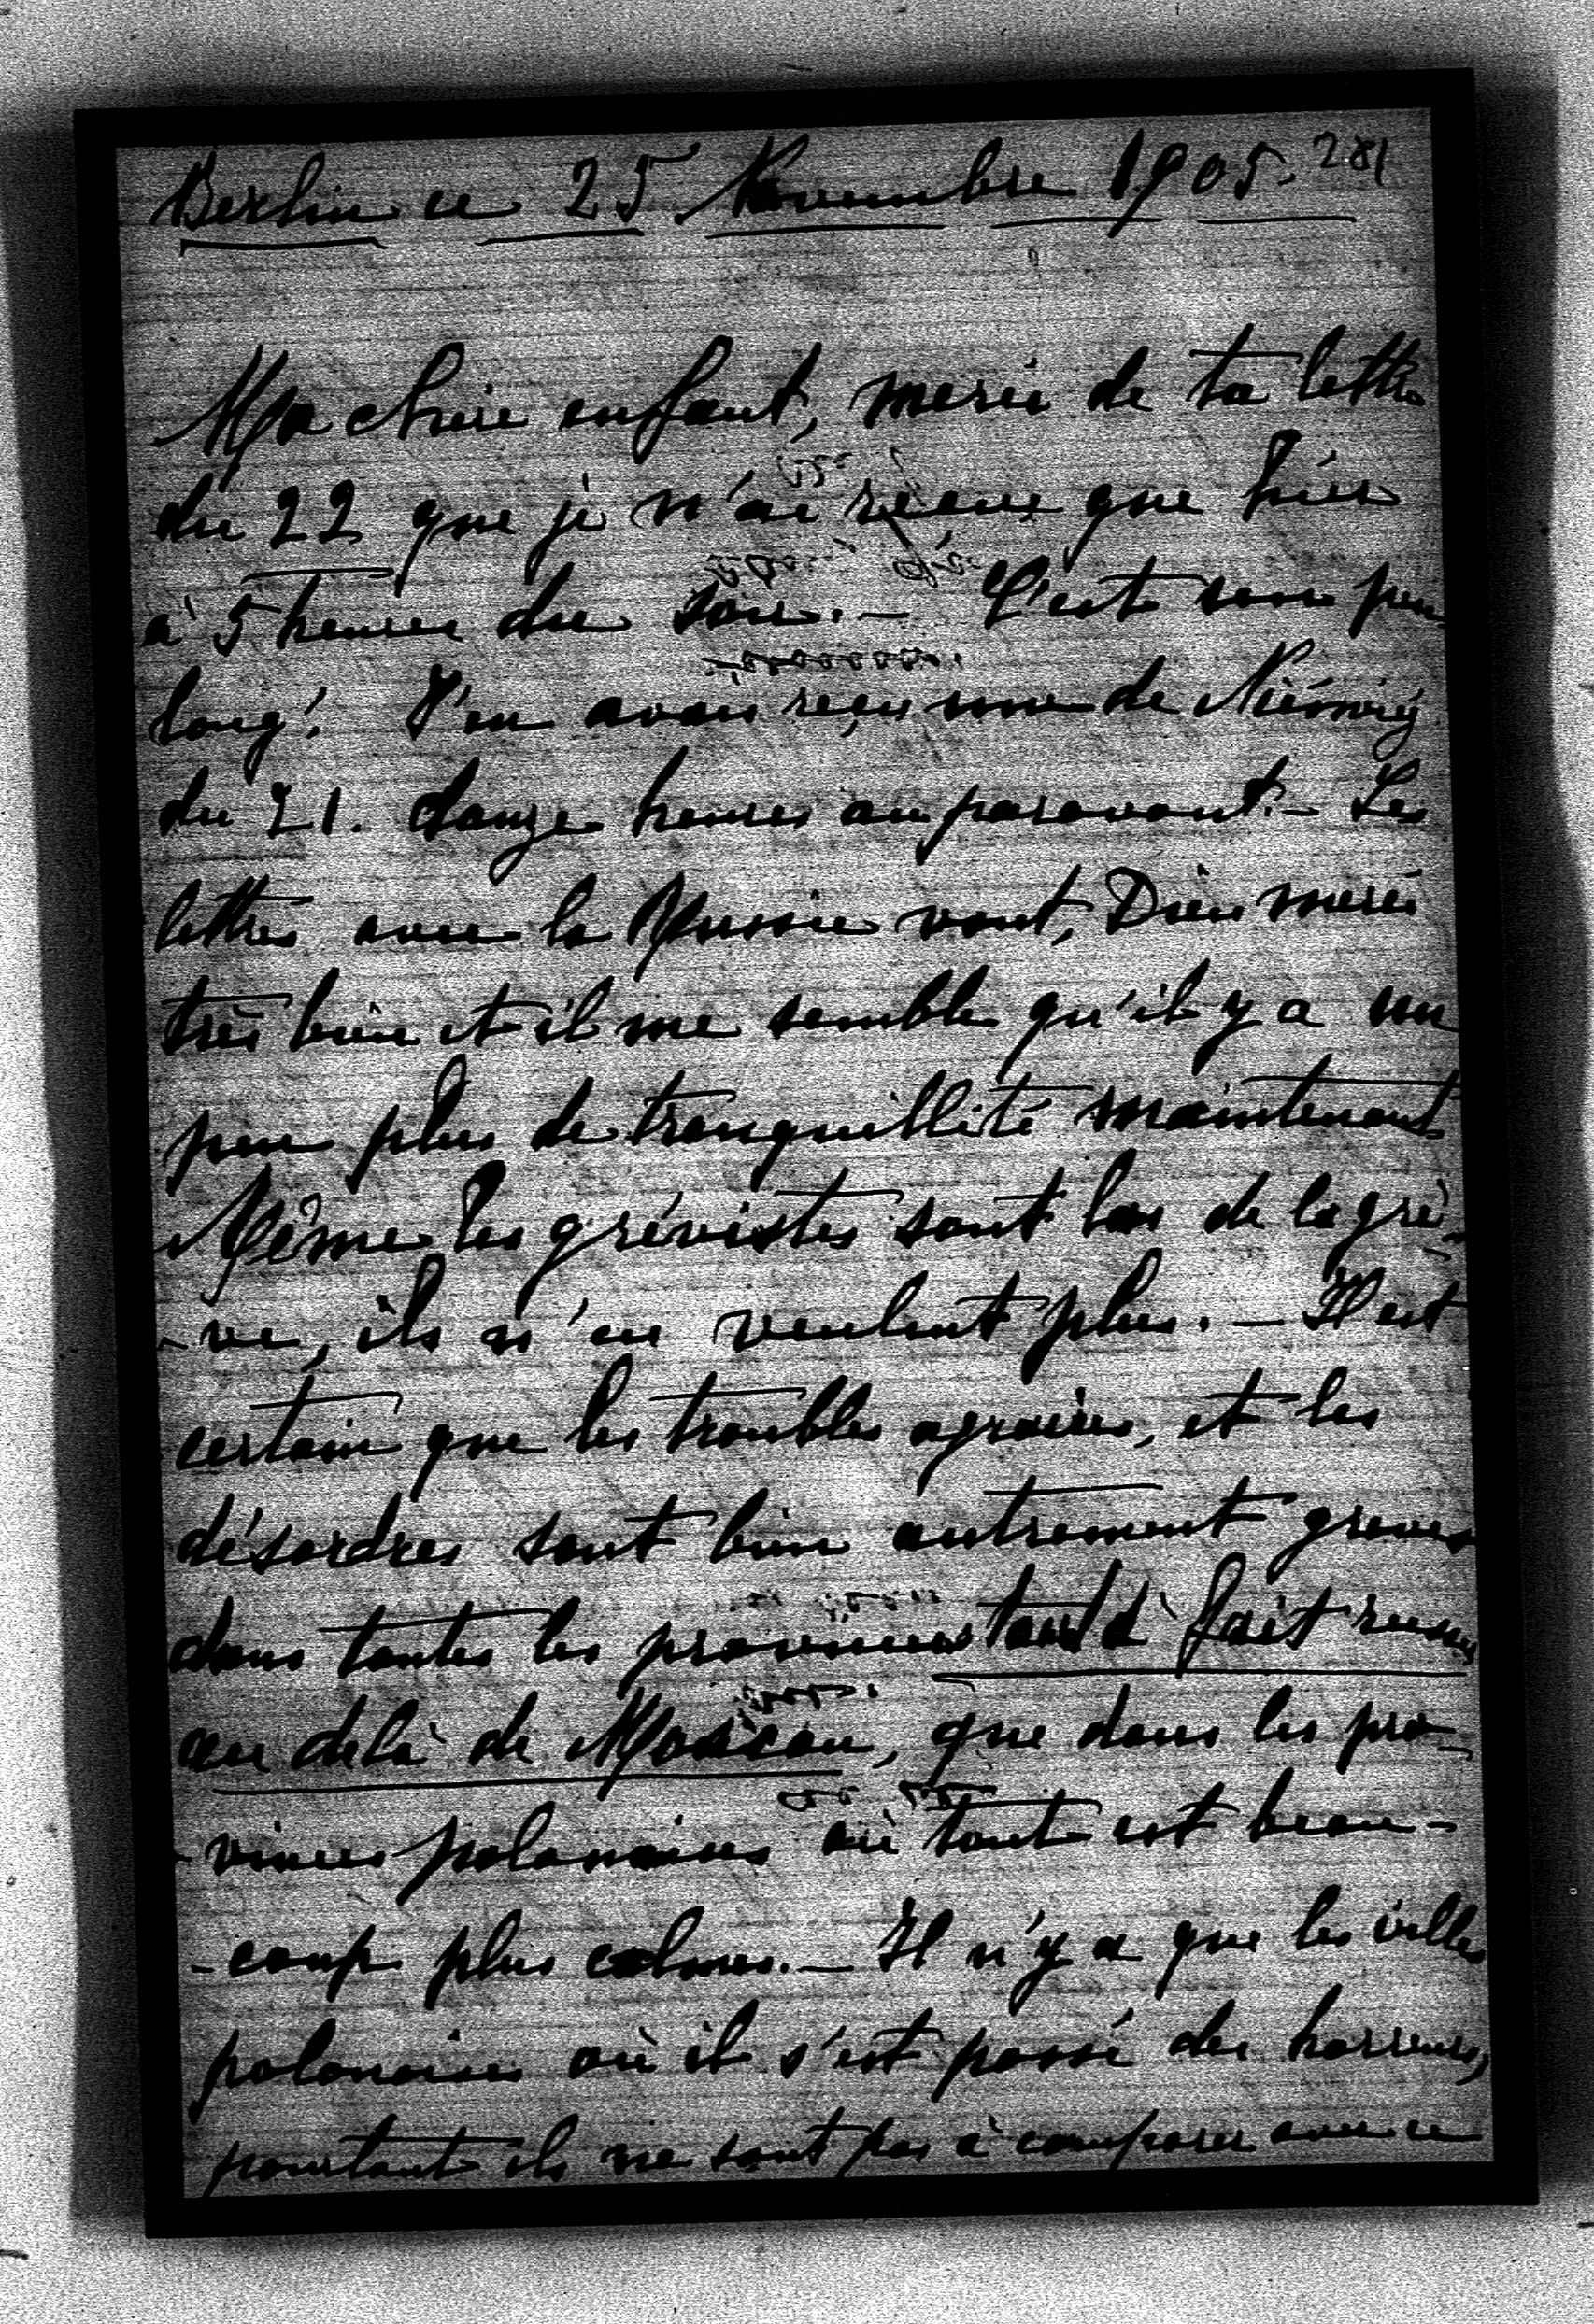 Berlin ce 25 Novembre 1905. 281
Ma chère enfant, merci de ta lettre
du 22 que je n'ai reçue que hier
à 5 heures du soir. — C'est un peu
long! J'en avais reçu une de Niéswiéj
du 21. douze heures au paravant. — Les
lettres avec la Russie vont, Dieu merci
très bien et il me semble qu'il y a un
peu plus de tranquillité maintenant
Même les grévistes sont las de la grè-
-ve, ils n'en veulent plus. — Il est
certain que les troubles agraires, et les
désordres sont bien autrement graves
dans toutes les provinces tout à fait russes
au delà de Moscou, que dans les pro-
-vinces polonaises où tout est beau-
-coup plus calmes. — Il n'y a que les villes
polonaises où il s'est passé des horreurs,
pourtant ils ne sont pas à comparer avec ce